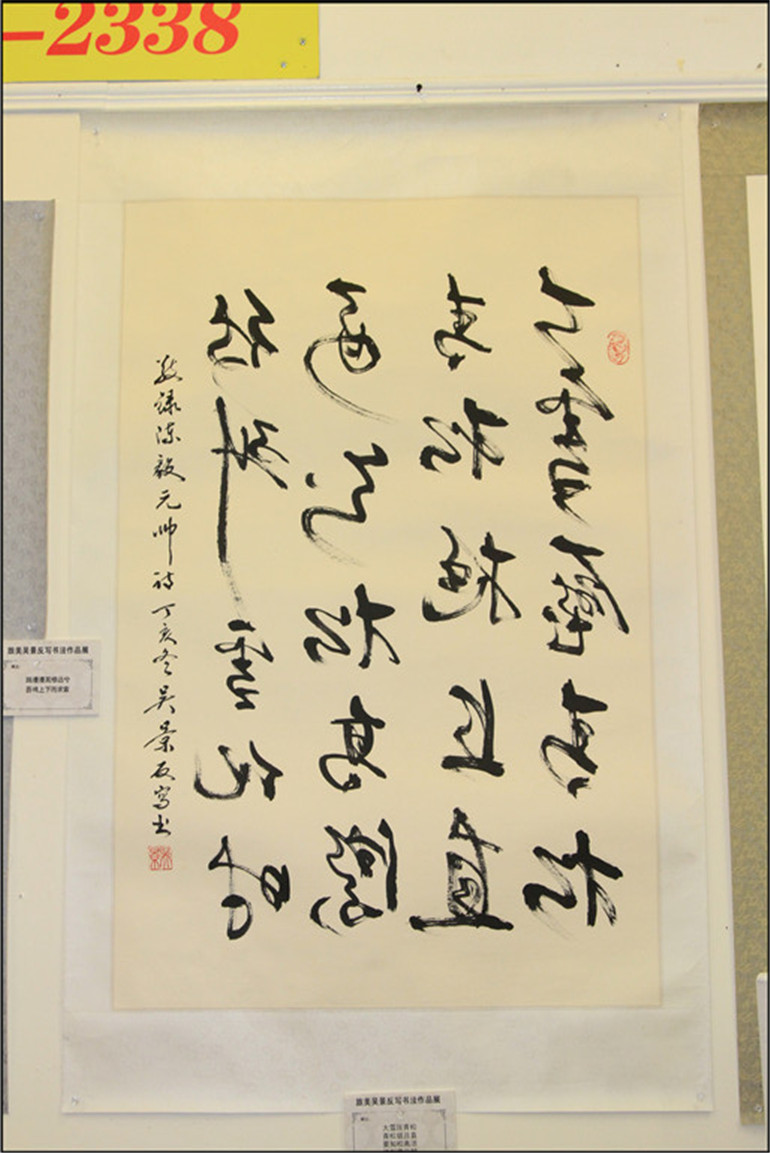 -2338
大雪壓青松
青松挺且直
要知松高潔
待到雪化时
敬录陈毅元帅诗丁亥冬吴景反写书
旅美吴景反写书法作品展
路漫漫其修远兮
吾将上下而求索
旅美吴景反写书法作品展
大雪压青松
青松挺且直
要知松高洁